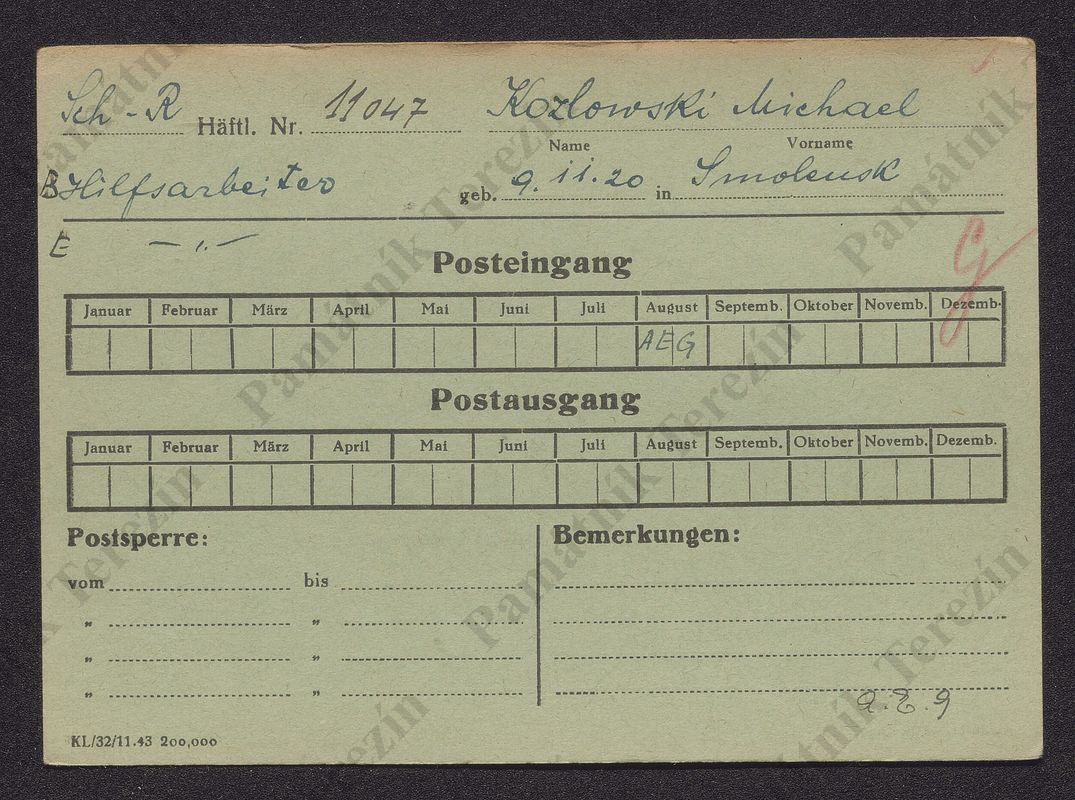 Sch - R Häftl. Nr. 11047 Kozlowski Michael
Name Vorname
B Hilfsarbeiter geb. 9. 11. 20 in Smolensk
E — " —
Posteingang
Januar Februar März April Mai Juni Juli August Septemb. Oktober Novemb. Dezemb.
AEG
Postausgang
Januar Februar März April Mai Juni Juli August Septemb. Oktober Novemb. Dezemb.
Postsperre: Bemerkungen:
vom bis
„ „
„ „
„ „
KL/32/11.43 200,000
Památník Terezín